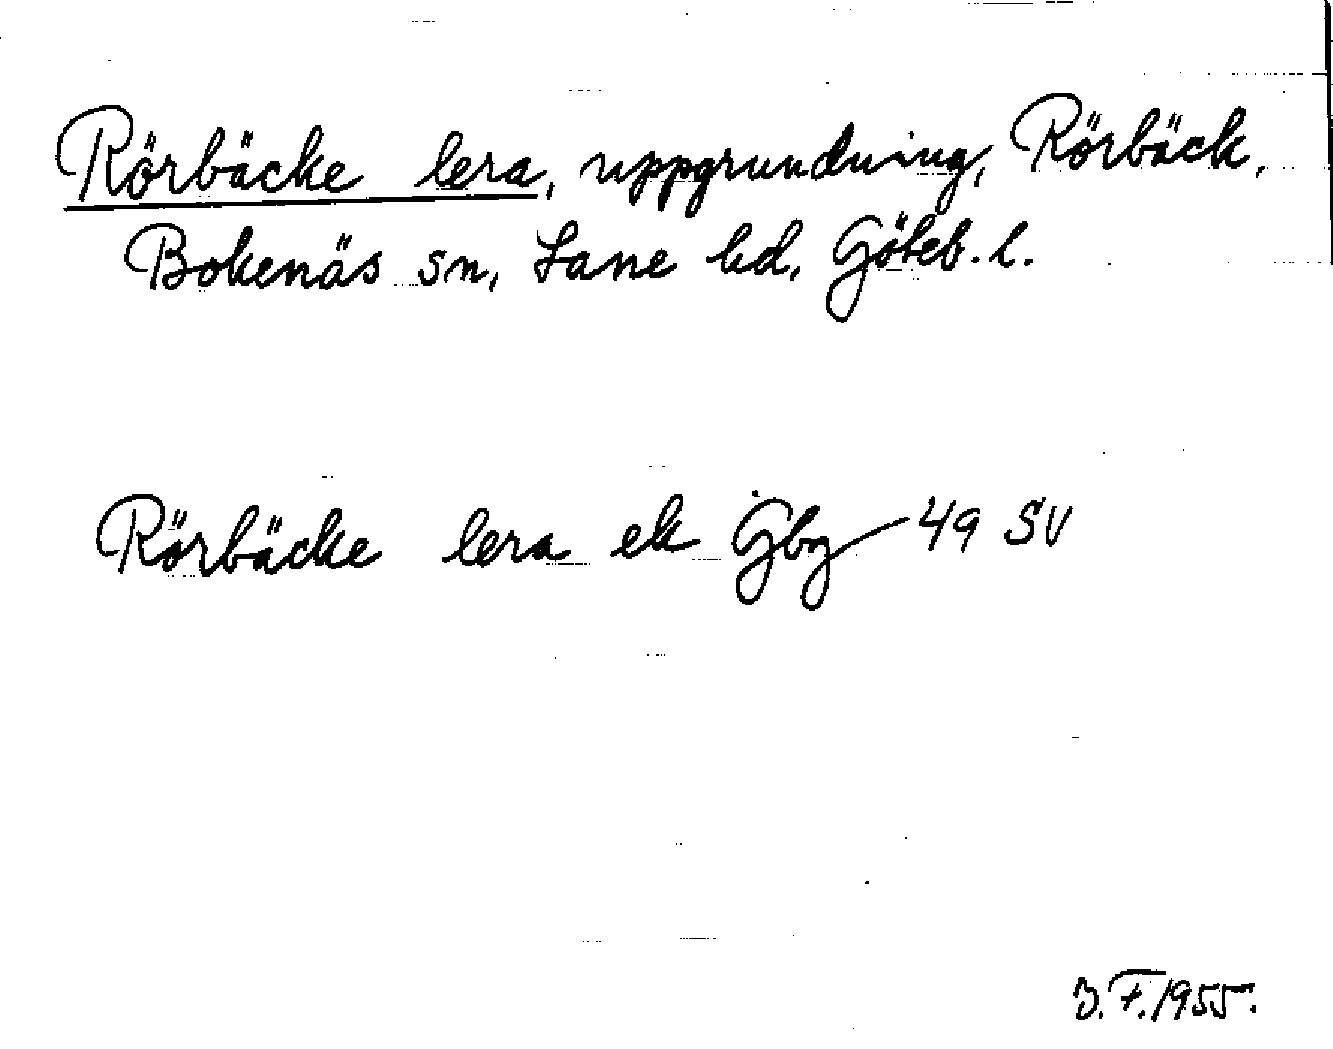 Rörbäcke lera, uppgrundning, Rörbäck,
Bokenäs sn, Lane hd, Göteb. l.
Rörbäcke lera ek Gbg 49 SV
B.F. 1955.